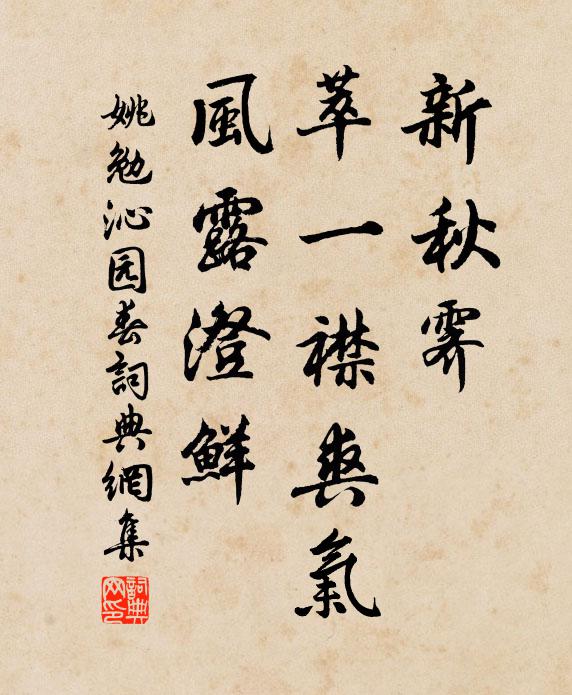 新秋霽
萃一襟爽氣
風露澄鮮
姚勉沁园春詞典網集
詞典網印